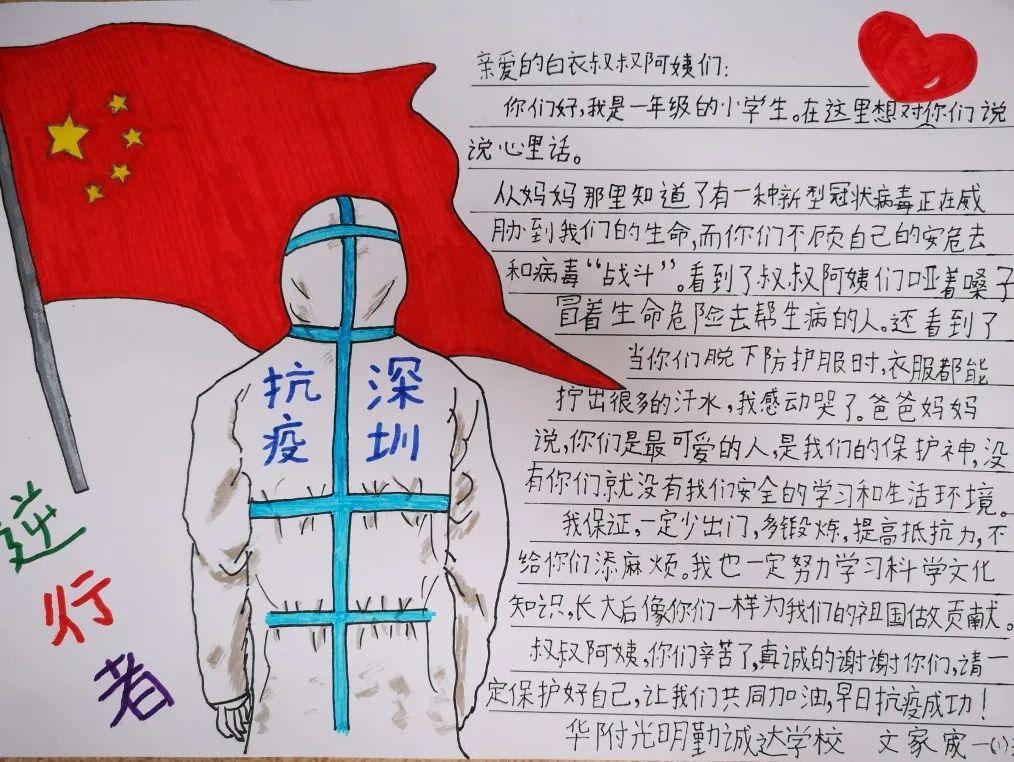 亲爱的白衣叔叔阿姨们:
你们好,我是一年级的小学生。在这里想对你们说
说心里话。
从妈妈那里知道了有一种新型冠状病毒正在威
胁到我们的生命,而你们不顾自己的安危去
和病毒“战斗”。看到了叔叔阿姨们哑着嗓子
冒着生命危险去帮生病的人。还看到了
当你们脱下防护服时,衣服都能
拧出很多的汗水,我感动哭了。爸爸妈妈
说,你们是最可爱的人,是我们的保护神,没
有你们就没有我们安全的学习和生活环境。
我保证,一定少出门,多锻炼,提高抵抗力,不
给你们添麻烦。我也一定努力学习科学文化
知识,长大后像你们一样为我们的祖国做贡献。
叔叔阿姨,你们辛苦了,真诚的谢谢你们,请一
定保护好自己,让我们共同加油,早日抗疫成功!
华附光明勤诚达学校 文家宬 一(1)
深圳
抗疫
逆行者